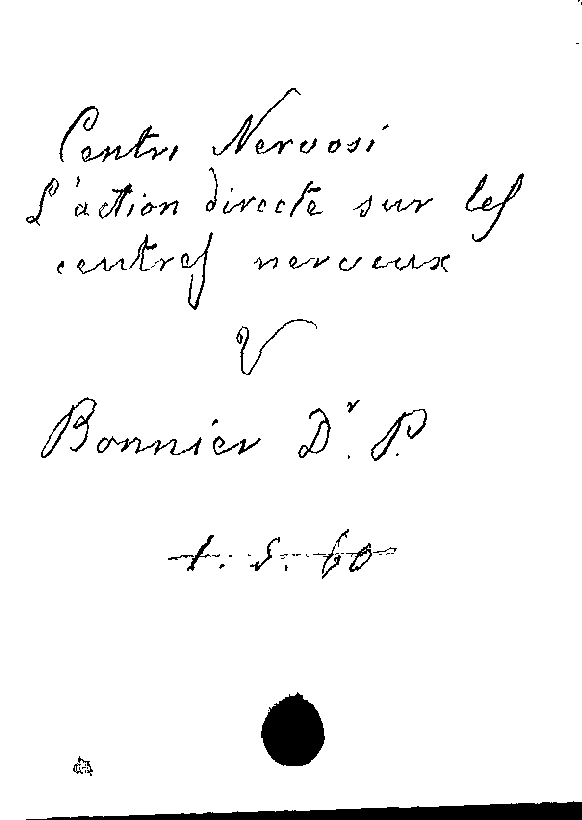 Centri Nervosi
L'action directe sur les
centres nerveux
V
Bonnier Dr. P.
1. 5. 60